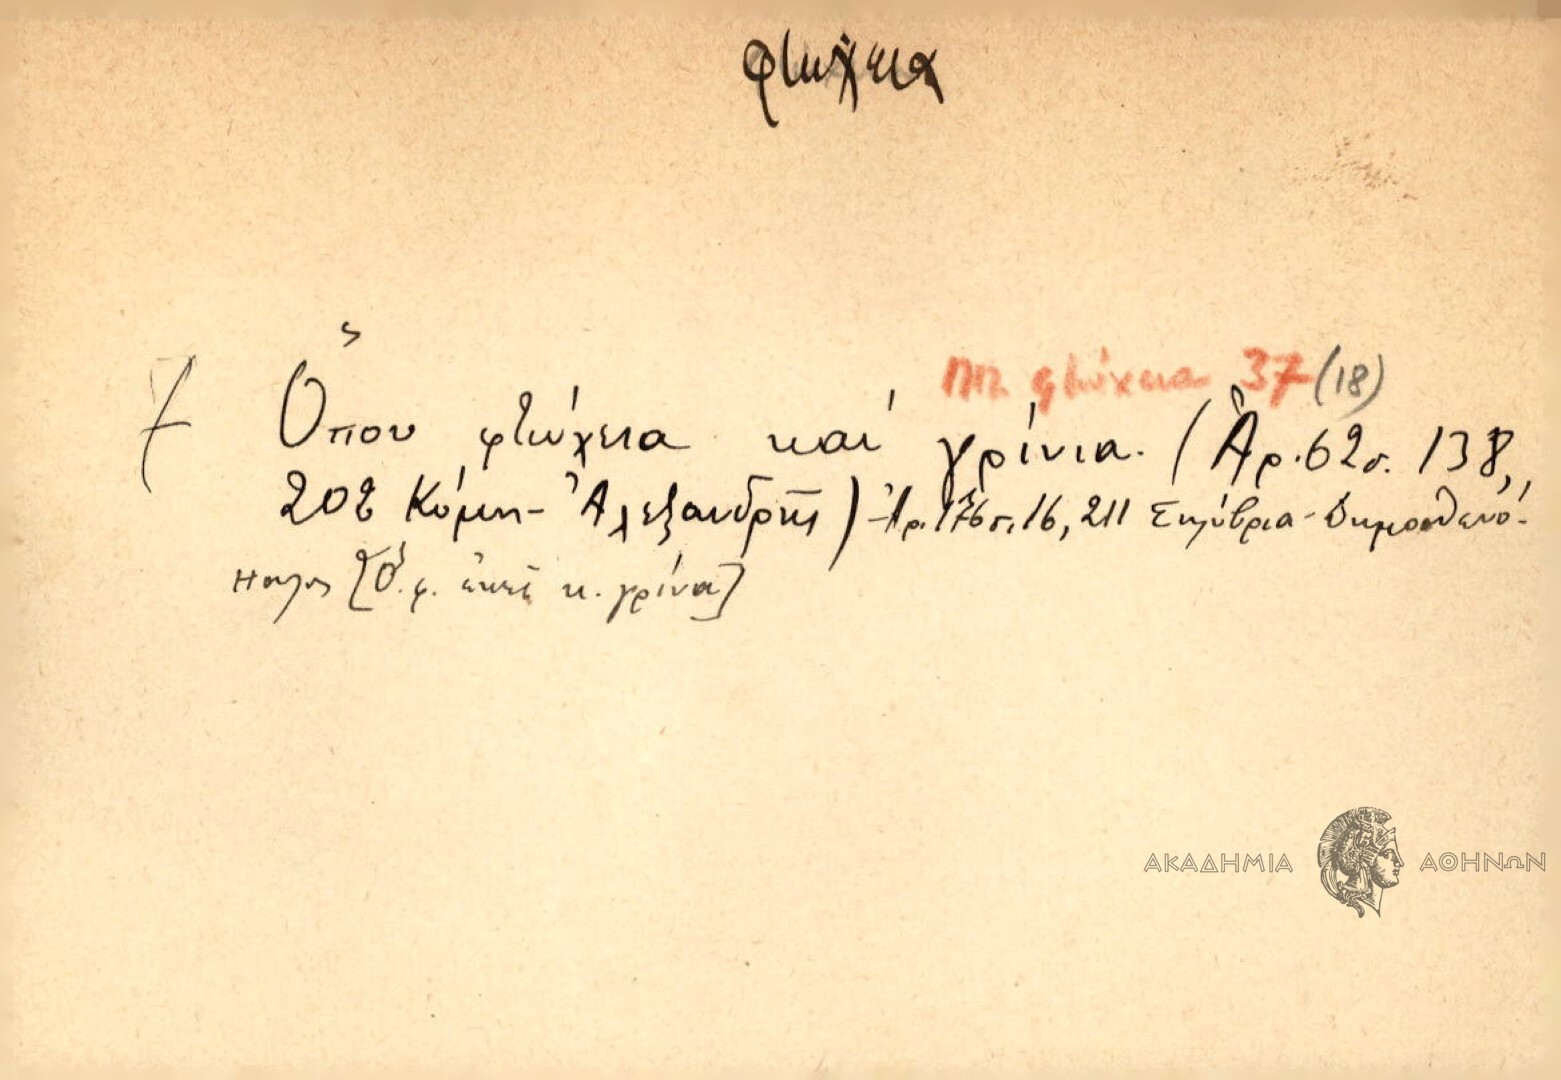 φτώχεια
ΠΠ φτώχεια 37 (18)
Ὅπου φτώχεια καί γρίνια. (Ἀρ. 62 σ. 138,
202 Κύμη - Ἀλεξανδρῆς) - Ἀρ. 176 σ. 16, 211 Σηλύβρια - Δημοσθενό-
πουλος [Ὅ. φ. ἐκεῖ κ. γρίνα]
ΑΚΑΔΗΜΙΑ ΑΘΗΝΩΝ